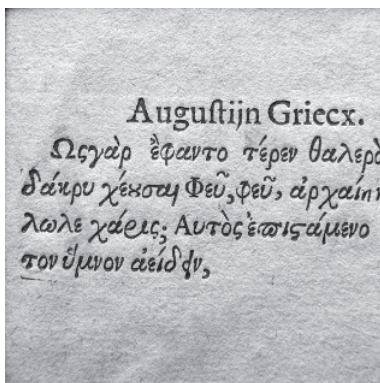 Auguſtijn Griecx.
Ωςγὰρ ἔφαντο τέρεν θαλερὸ
δάκρυ χέουσαι Φεῦ, φεῦ, ἀρχαίη
λωλε χάρις; Αυτὸς ἐπιστάμενο
τον ὕμνον ἀείδειν,